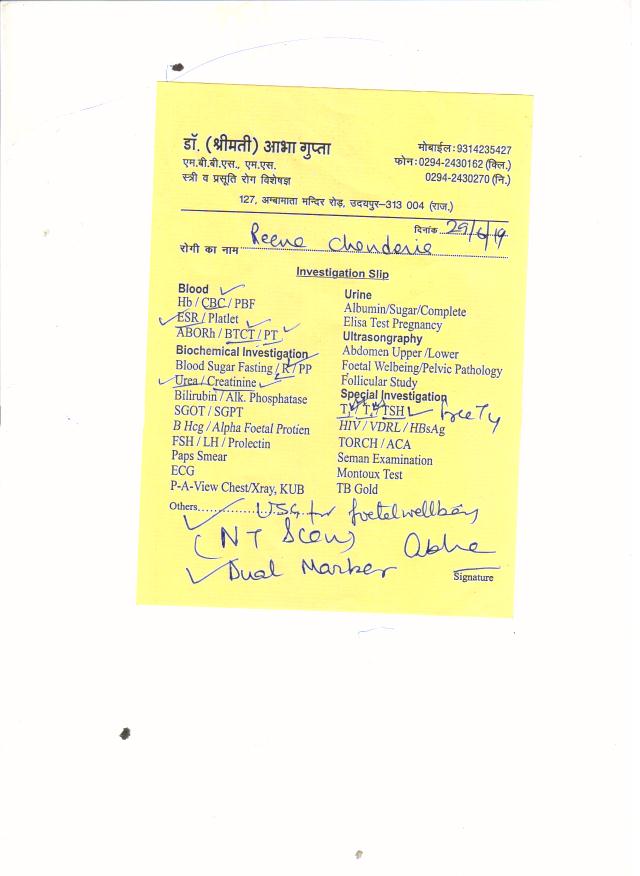 डॉ. (श्रीमती) आभा गुप्ता
एम.बी.बी.एस., एम.एस.
स्त्री व प्रसूति रोग विशेषज्ञ
मोबाईल:9314235427
फोन:0294-2430162 (क्लि.)
0294-2430270 (नि.)
127, अम्बामाता मन्दिर रोड़, उदयपुर–313 004 (राज.)
दिनांक 29/6/19
रोगी का नाम Reena Chanderia
Investigation Slip
Blood
Hb / CBC / PBF
ESR / Platlet
ABORh / BTCT / PT
Biochemical Investigation
Blood Sugar Fasting / R / PP
Urea / Creatinine
Bilirubin / Alk. Phosphatase
SGOT / SGPT
B Hcg / Alpha Foetal Protien
FSH / LH / Prolectin
Paps Smear
ECG
P-A-View Chest/Xray, KUB
Urine
Albumin/Sugar/Complete
Elisa Test Pregnancy
Ultrasongraphy
Abdomen Upper /Lower
Foetal Welbeing/Pelvic Pathology
Follicular Study
Special Investigation
T3 T4 TSH free T4
HIV / VDRL / HBsAg
TORCH / ACA
Seman Examination
Montoux Test
TB Gold
Others.............. USG for foetal wellbeing
(NT Scan)
Dual Marker
Abha
Signature